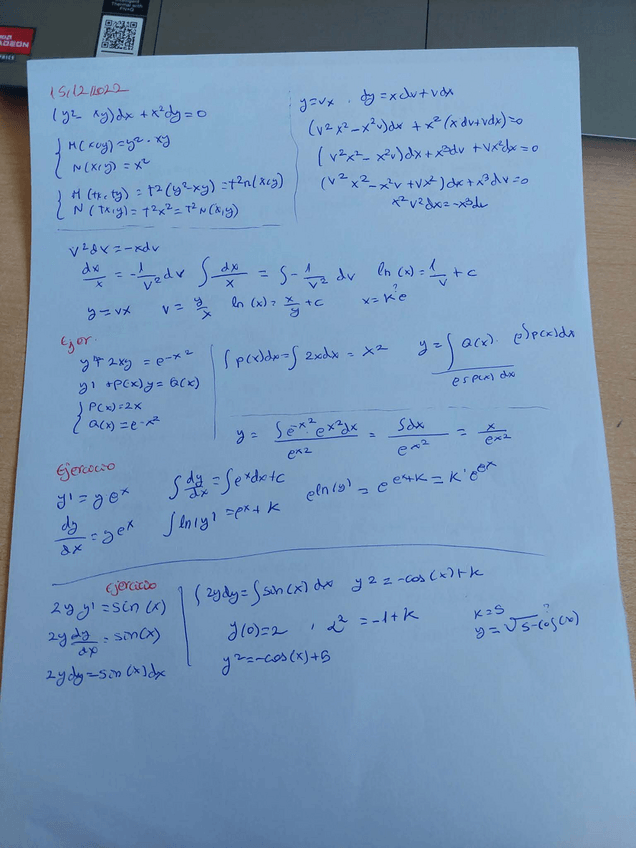 RADEON
15/12/2022
(y² - xy)dx + x²dy = 0
M(x,y) = y² - xy
N(x,y) = x²
M(tx,ty) = t2(y²xy) = t²n(x,y)
N(tx,y) = t²x² = t²N(x,y)
y=vx . dy = xdv + vdx
(v²x² - x²v)dx + x²(xdv+vdx)=0
(v²x² - x²v)dx + x³dv + vx²dx = 0
(v²x² - x²v + vx²)dx + x³dv = 0
x²v²dx = -x³dv
v²dx = -xdv
dx/x = -1/v² dv ∫dx/x = ∫-1/v² dv ln(x) = 1/v + c
y = vx v = y/x ln(x) = x/y + c x = k e^?
Ejer
y' + 2xy = e^-x²
y' + P(x)y = Q(x)
P(x) = 2x
Q(x) = e^-x²
∫p(x)dx = ∫2xdx = x² y = ∫Q(x). e^∫p(x)dx / e^∫p(x)dx
y = ∫e^-x² e^x² dx / e^x² = ∫dx / e^x² = x / e^x²
Ejercicio
y' = y e^x
dy/dx = y e^x
∫dy/dx = ∫e^x dx + c
∫ln|y| = e^x + k
e^ln|y| = e^e^x+k = k' e^e^x
Ejercicio
2y y' = sin(x)
2y dy/dx = sin(x)
2ydy = sin(x)dx
∫2ydy = ∫sin(x)dx y² = -cos(x)+k
y(0)=2 , 2² = -1+k
y² = -cos(x)+5
k=5
y = √5-cos(x) ?